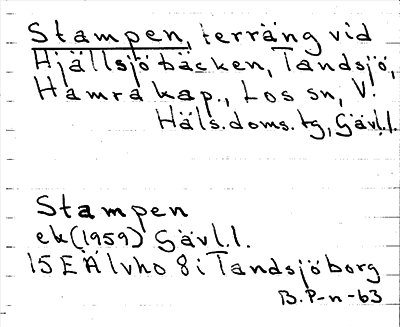 Stampen, terräng vid
Hjällsjöbäcken, Tandsjö,
Hamra kap., Los sn, V.
Häls. doms. tg, Gävl.l.
Stampen
ek (1959) Gävl.l.
15 E Älvho 8 i Tandsjöborg
B. P-n -63